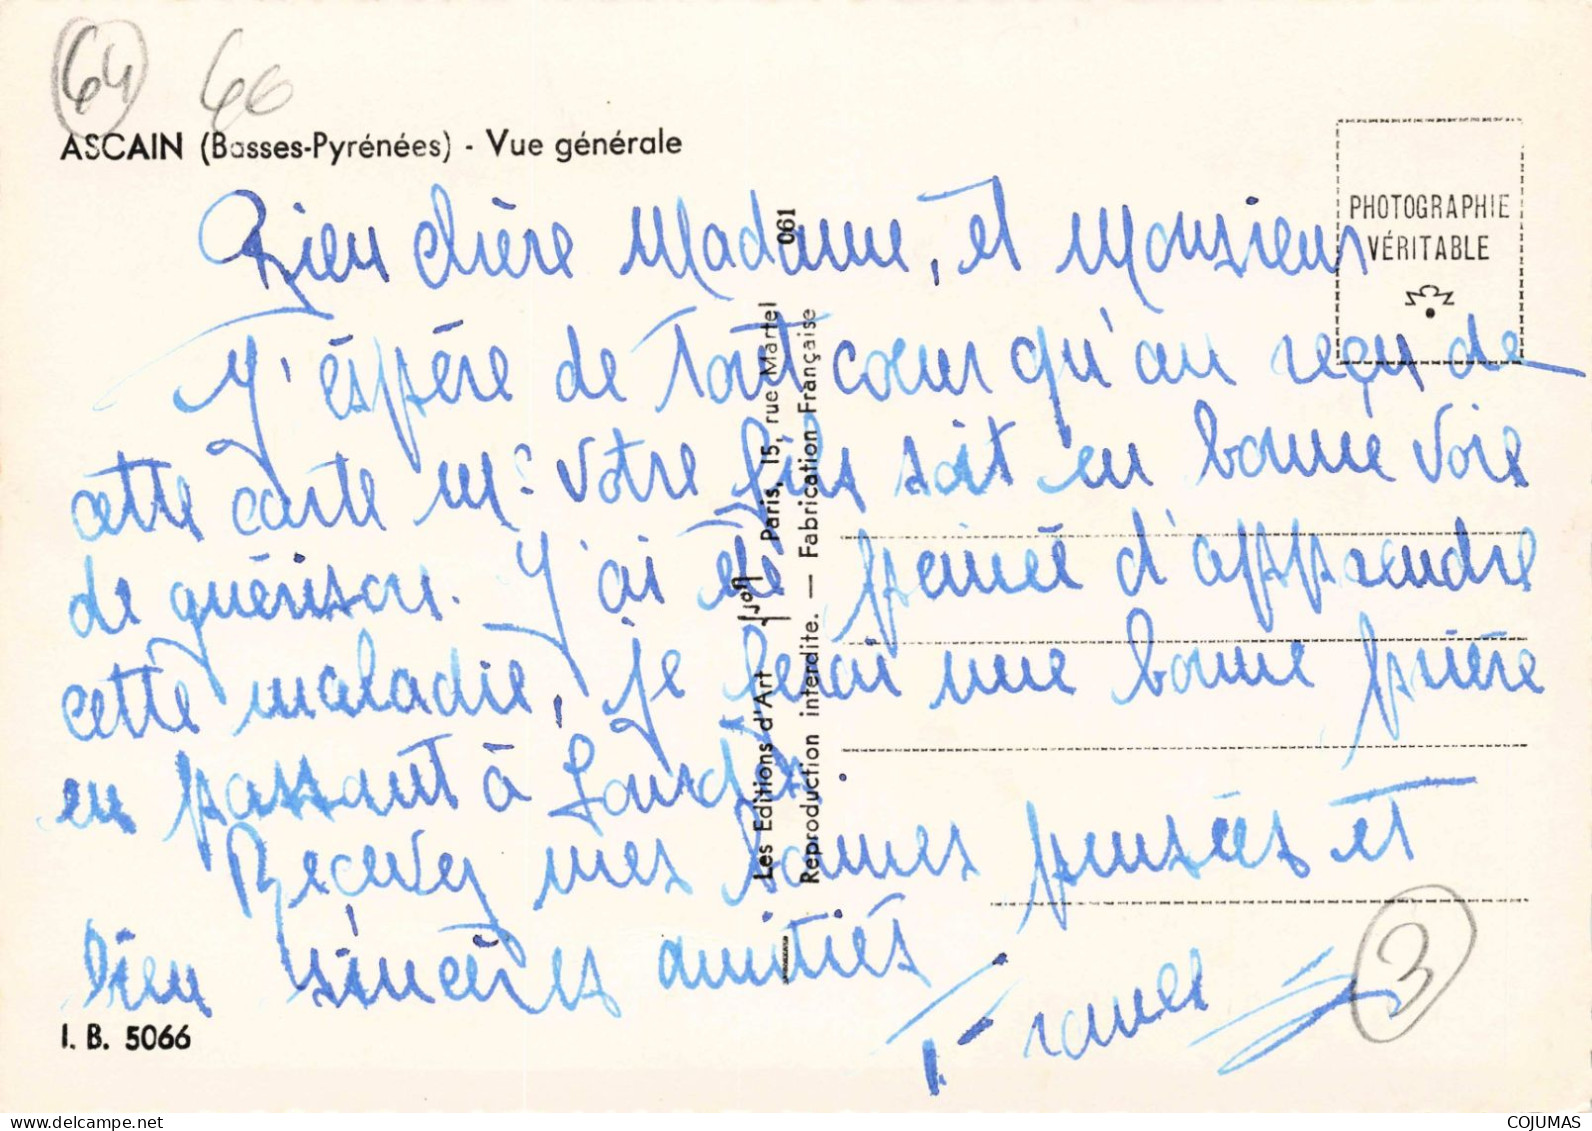 64 66
ASCAIN (Basses-Pyrénées) - Vue générale
PHOTOGRAPHIE
VÉRITABLE
Bien chère Madame, et Monsieur
J'éspére de tout cœur qu'au reçu de
cette carte votre fils soit en bonne voie
de guérison. J'ai été peinée d'apprendre
cette maladie, je ferai une bonne prière
en passant à Lourdes.
Recevez mes bonnes pensées et
bien sincères amitiés
3
I. B. 5066
Les Editions d'Art Yvon Paris, 15, rue Martel 061
Reproduction interdite. — Fabrication Française
COJUMAS